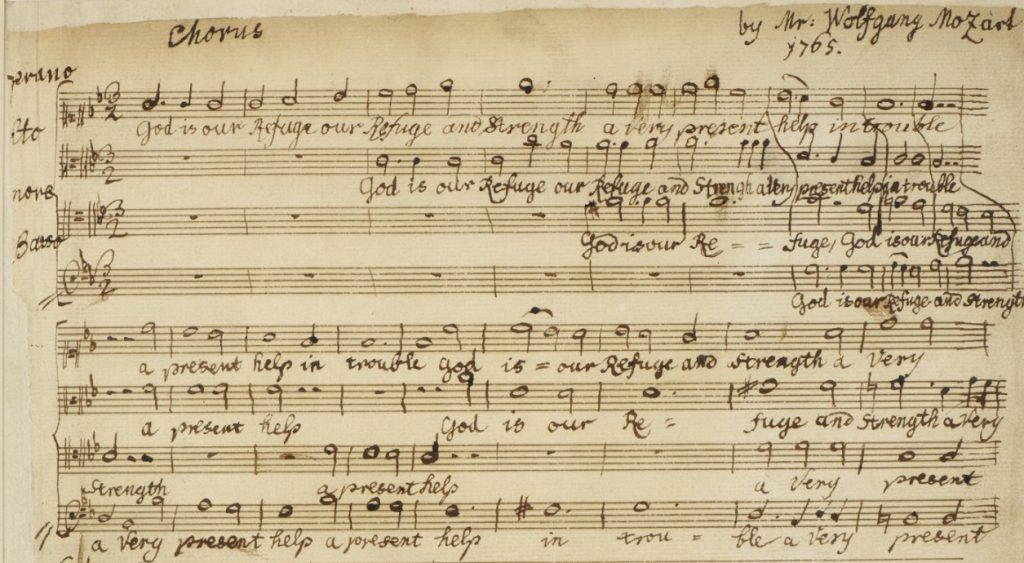 Chorus
by Mr: Wolfgang Mozart
1765.
prano
lto
nore
Basso
God is our Refuge our Refuge and Strength a very present help in trouble
God is our Refuge our Refuge and Strength a Very present help in trouble
God is our Re = = fuge, God is our Refuge and
God is our Refuge and Strength
a present help in trouble God is = our Refuge and Strength a Very
a present help God is our Re = fuge and Strength a Very
Strength a present help a Very present
a Very present help a present help in trou = ble a Very present